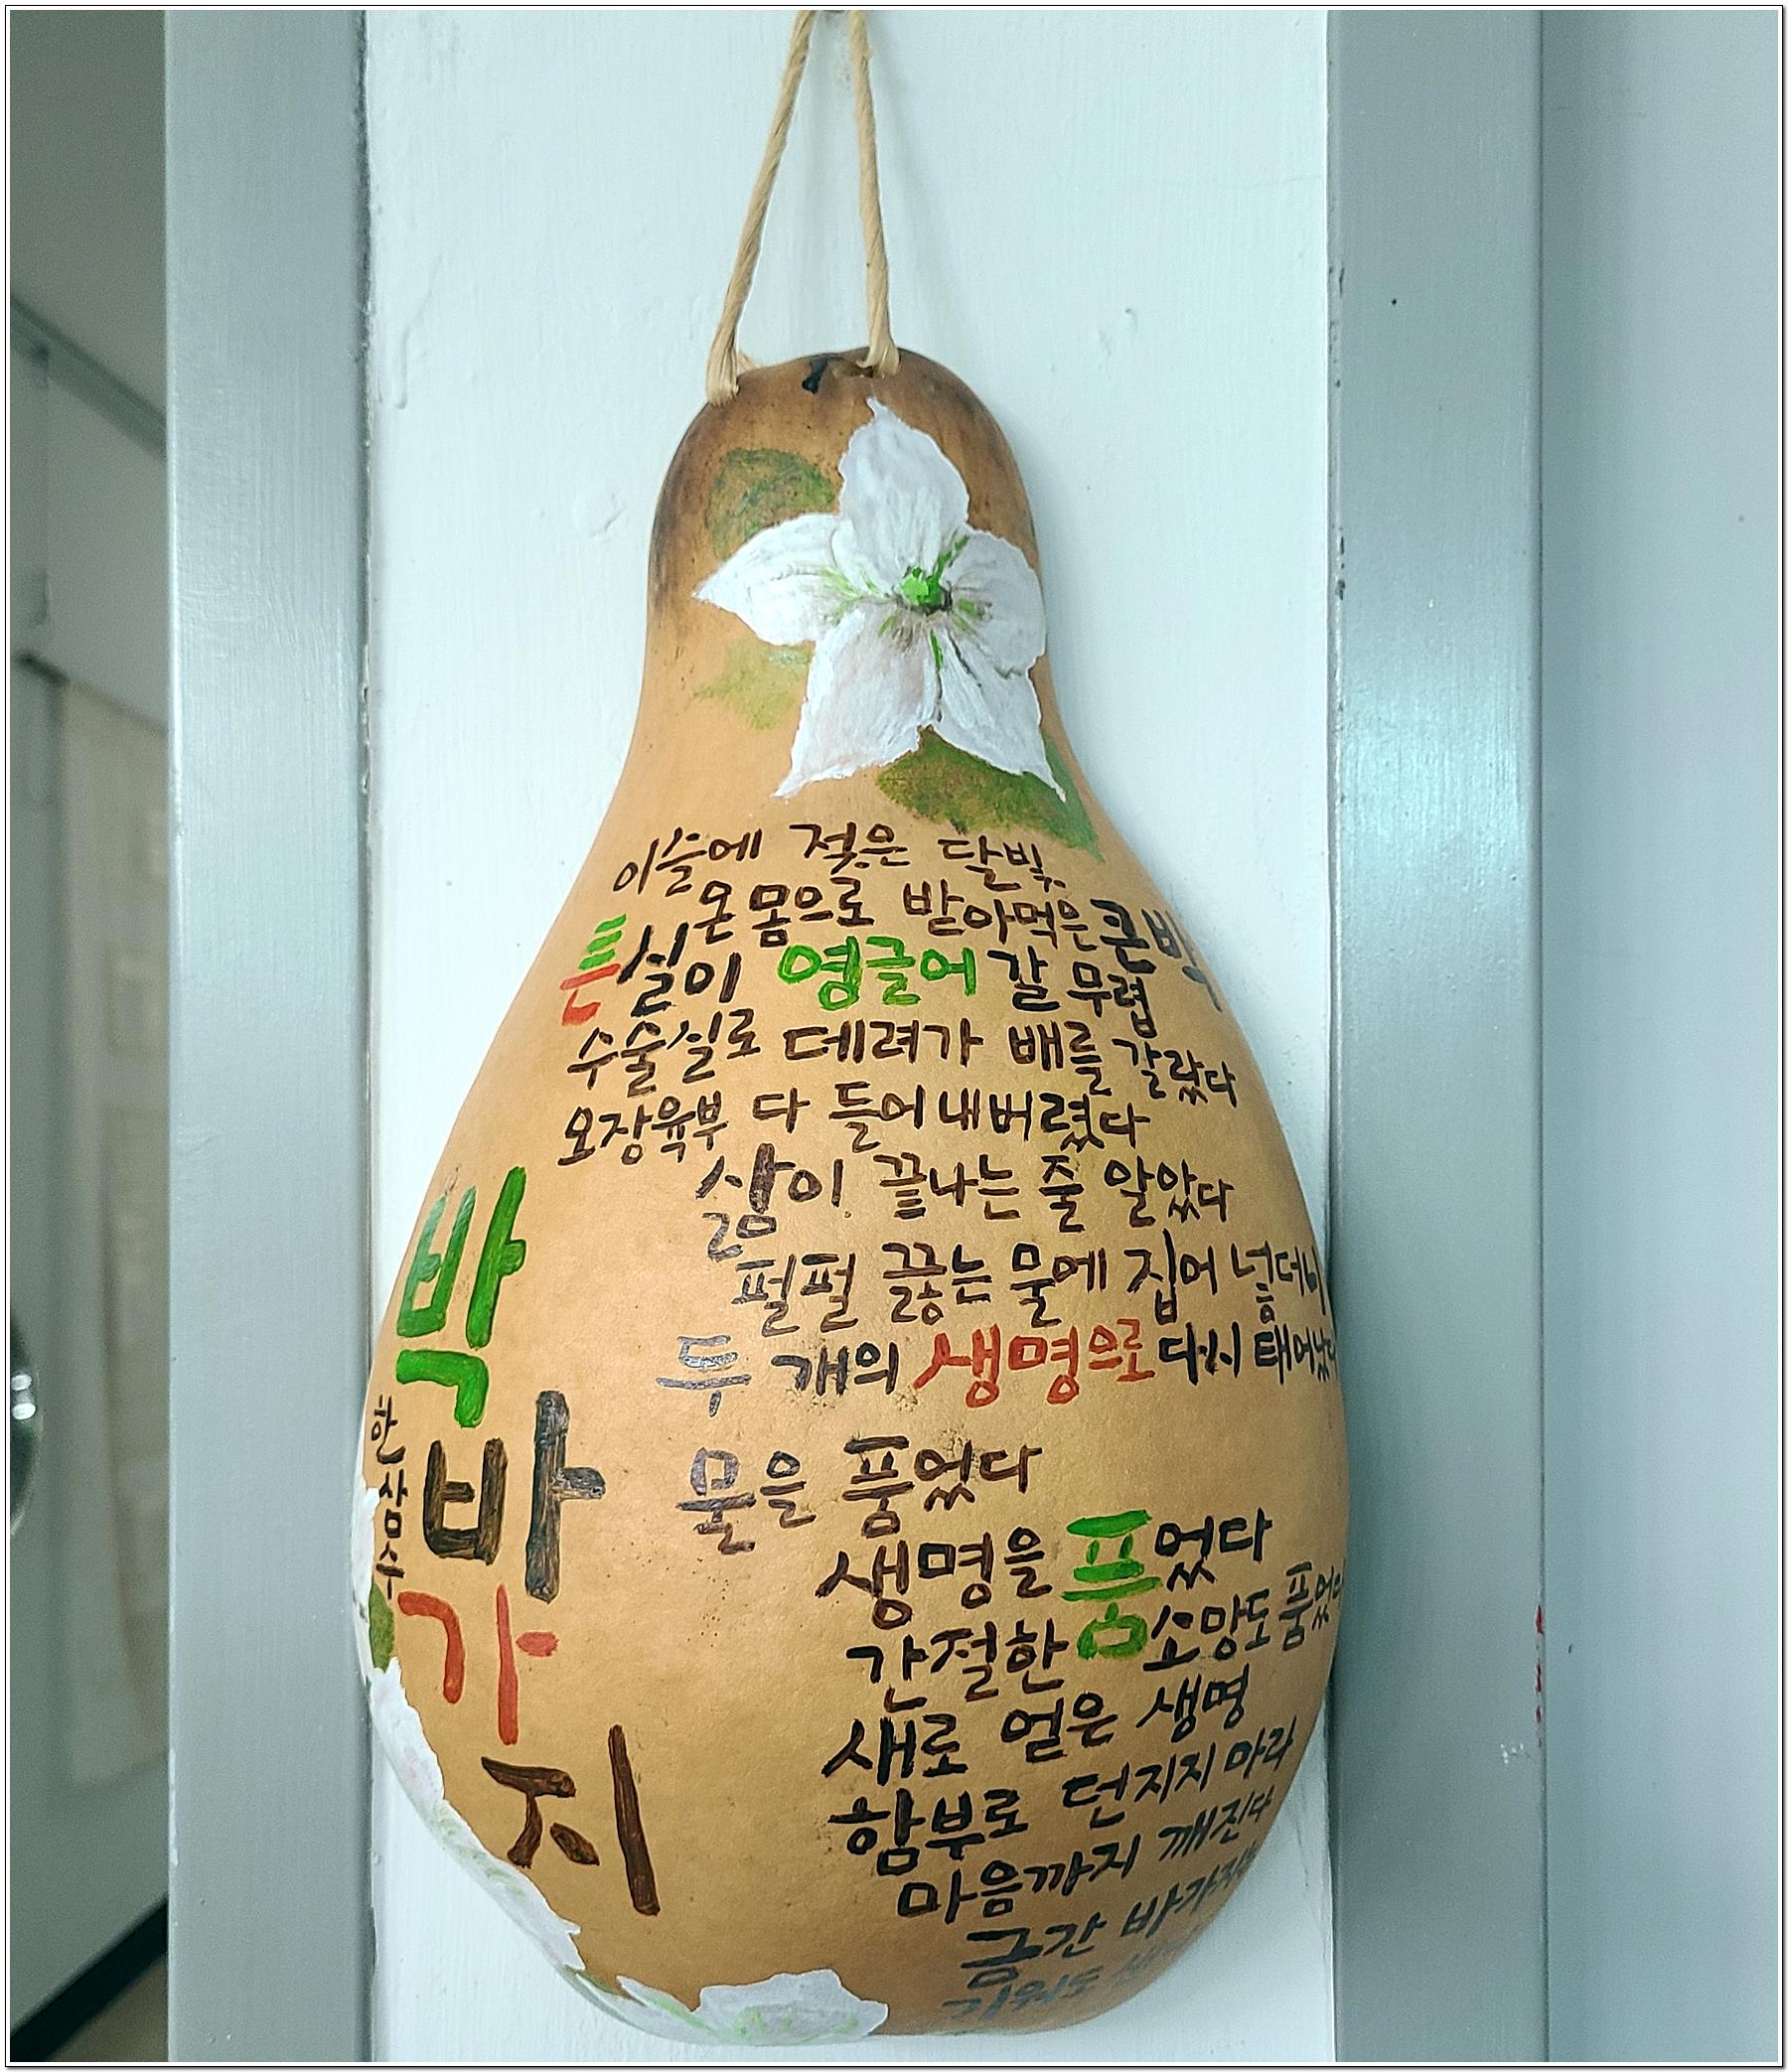 박 바가지
한상수
이슬에 젖은 달빛
온 몸으로 받아먹은 큰 박
튼실이 영글어 갈 무렵
수술실로 데려가 배를 갈랐다
오장육부 다 들어내버렸다
삶이 끝나는 줄 알았다
펄펄 끓는 물에 집어 넣더니
두 개의 생명으로 다시 태어났다
물을 품었다
생명을 품었다
간절한 소망도 품었다
새로 얻은 생명
함부로 던지지 마라
마음까지 깨진다
금간 바가지는
기워도